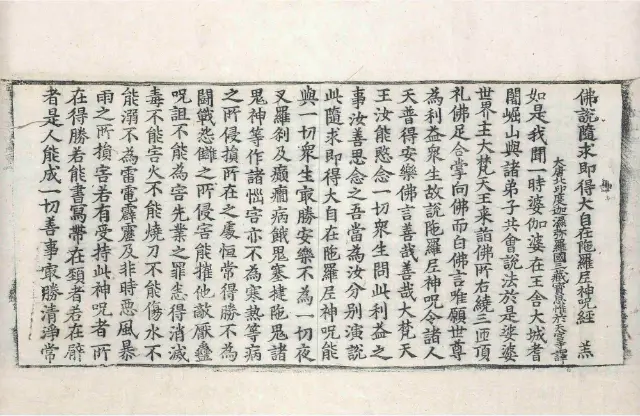 佛說隨求即得大自在陁羅尼神呪經 羔
大唐北印度迦濕弥羅國三藏寶思惟於天宮寺譯
如是我聞一時婆伽婆在王舍大城耆
闍崛山與諸弟子共會說法於是娑婆
世界主大梵天王来詣佛所右繞三匝頂
礼佛足合掌向佛而白佛言唯願世尊
為利益衆生故說陁羅尼神呪令諸人
天普得安樂佛言善哉善哉大梵天
王汝能愍念一切衆生問此利益之
事汝善思念之吾當為汝分別演說
此隨求即得大自在陁羅尼神呪能
與一切衆生㝡勝安樂不為一切夜
叉羅剎及癲癇病餓鬼塞揵陁鬼諸
鬼神等作諸惱害亦不為寒熱等病
之所侵損所在之處恒常得勝不為
鬪戰怨讎之所侵害能摧他敵厭蠱
呪詛不能為害先業之罪悉得消滅
毒不能害火不能燒刀不能傷水不
能溺不為雷電霹靂及非時惡風暴
雨之所損害若有受持此神呪者所
在得勝若能書寫帶在頸者若在臂
者是人能成一切善事㝡勝清淨常